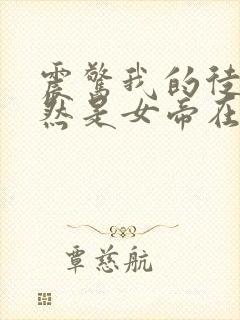 震驚我的徒
然是女帝在
覃慈航